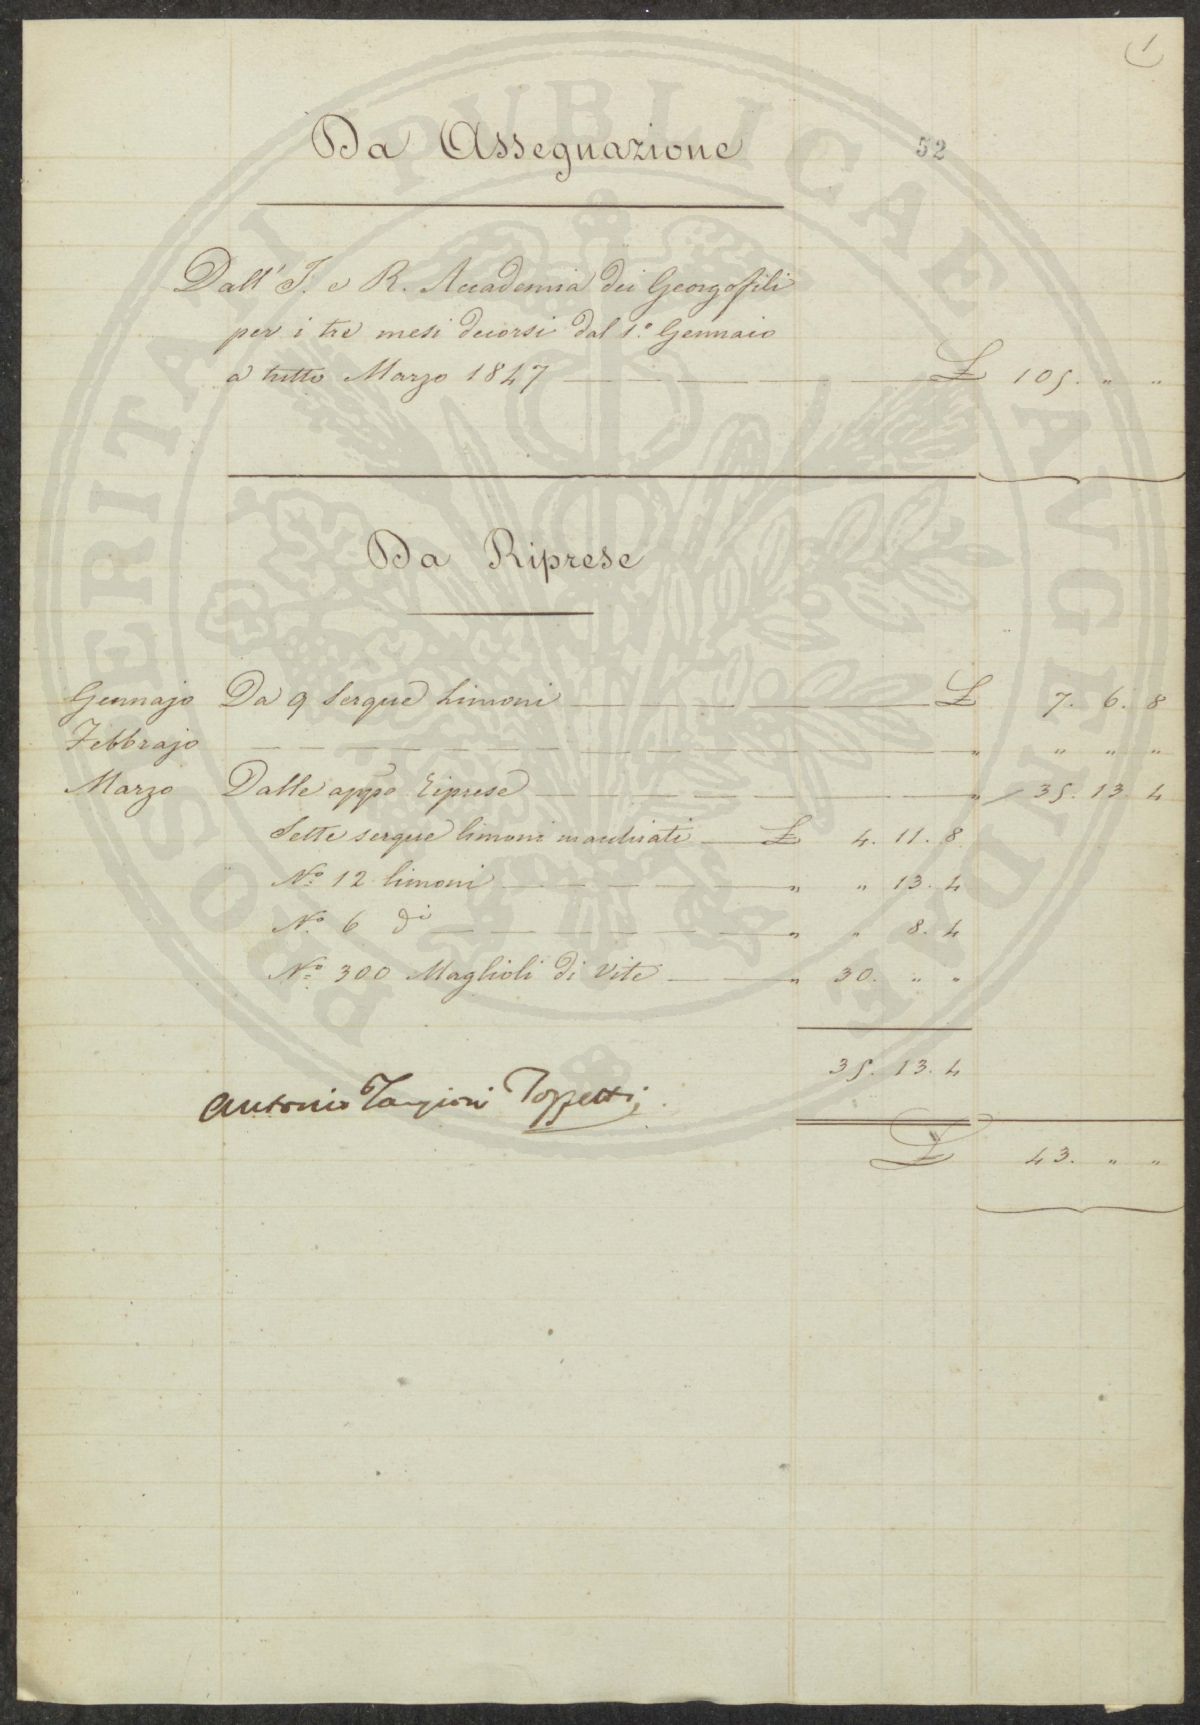 1
Da Assegnazione
52
Dall' I. e R. Accademia dei Georgofili
per i tre mesi decorsi dal 1.º Gennaio
a tutto Marzo 1847 — — — — £ 105. " "
Da Riprese
Gennajo Da 9 Serque Limoni — — — — £ 7. 6. 8
Febbrajo — — — — " " " "
Marzo Dalle appo Riprese — — — — " 35. 13. 4
Sette serque limoni marchiati — £ 4. 11. 8
Nº. 12 limoni — — — — " " 13. 4
Nº. 6 di — — — — " " 8. 4
Nº. 300 Maglioli di Vite — — " 30. " "
35. 13. 4
Antonio Targioni Tozzetti
£ 43. " "
PROSPERITATI PUBLICAE AVGENDAE